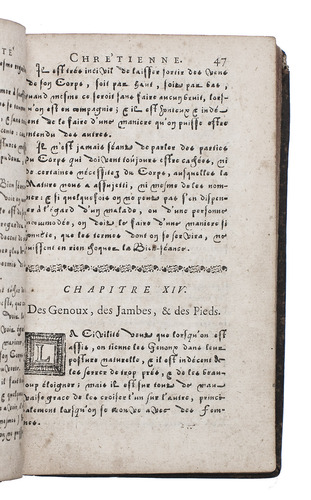 CHRÊTIENNE. 47
Il est très incivil de laisser sortir des vens
de son Corps, soit par haut, soit par bas,
quand mesme ce seroit sans faire aucun bruit, lors-
qu'on est en compagnie; & il est honteux & indé-
cent de le faire d'une maniere qu'on puisse estre
entendu des autres.
Il n'est jamais séant de parler des parties
du Corps qui doivent toûjours estre cachées, ni
de certaines necessitez du Corps, ausquelles la
Nature nous a assujetti, ni mesme de les nom-
mer; & si quelquefois on ne peut pas s'en dispen-
ser à l'égard d'un malade, ou d'une personne
incommodée, on doit le faire d'une maniere si
honnête, que les termes dont on se servira, ne
puissent en rien choquer la Bien-séance.
CHAPITRE XIV.
Des Genoux, des Jambes, & des Pieds.
LA Civilité veut que lorsqu'on est
assis, on tienne les Genoux dans leur
posture naturelle, & il est indécent de
les serrer de trop près, & de les beau-
coup éloigner; mais il est sur tout de mau-
vaise grace de les croiser l'un sur l'autre, princi-
palement lorsqu'on se trouve avec des Fem-
mes.